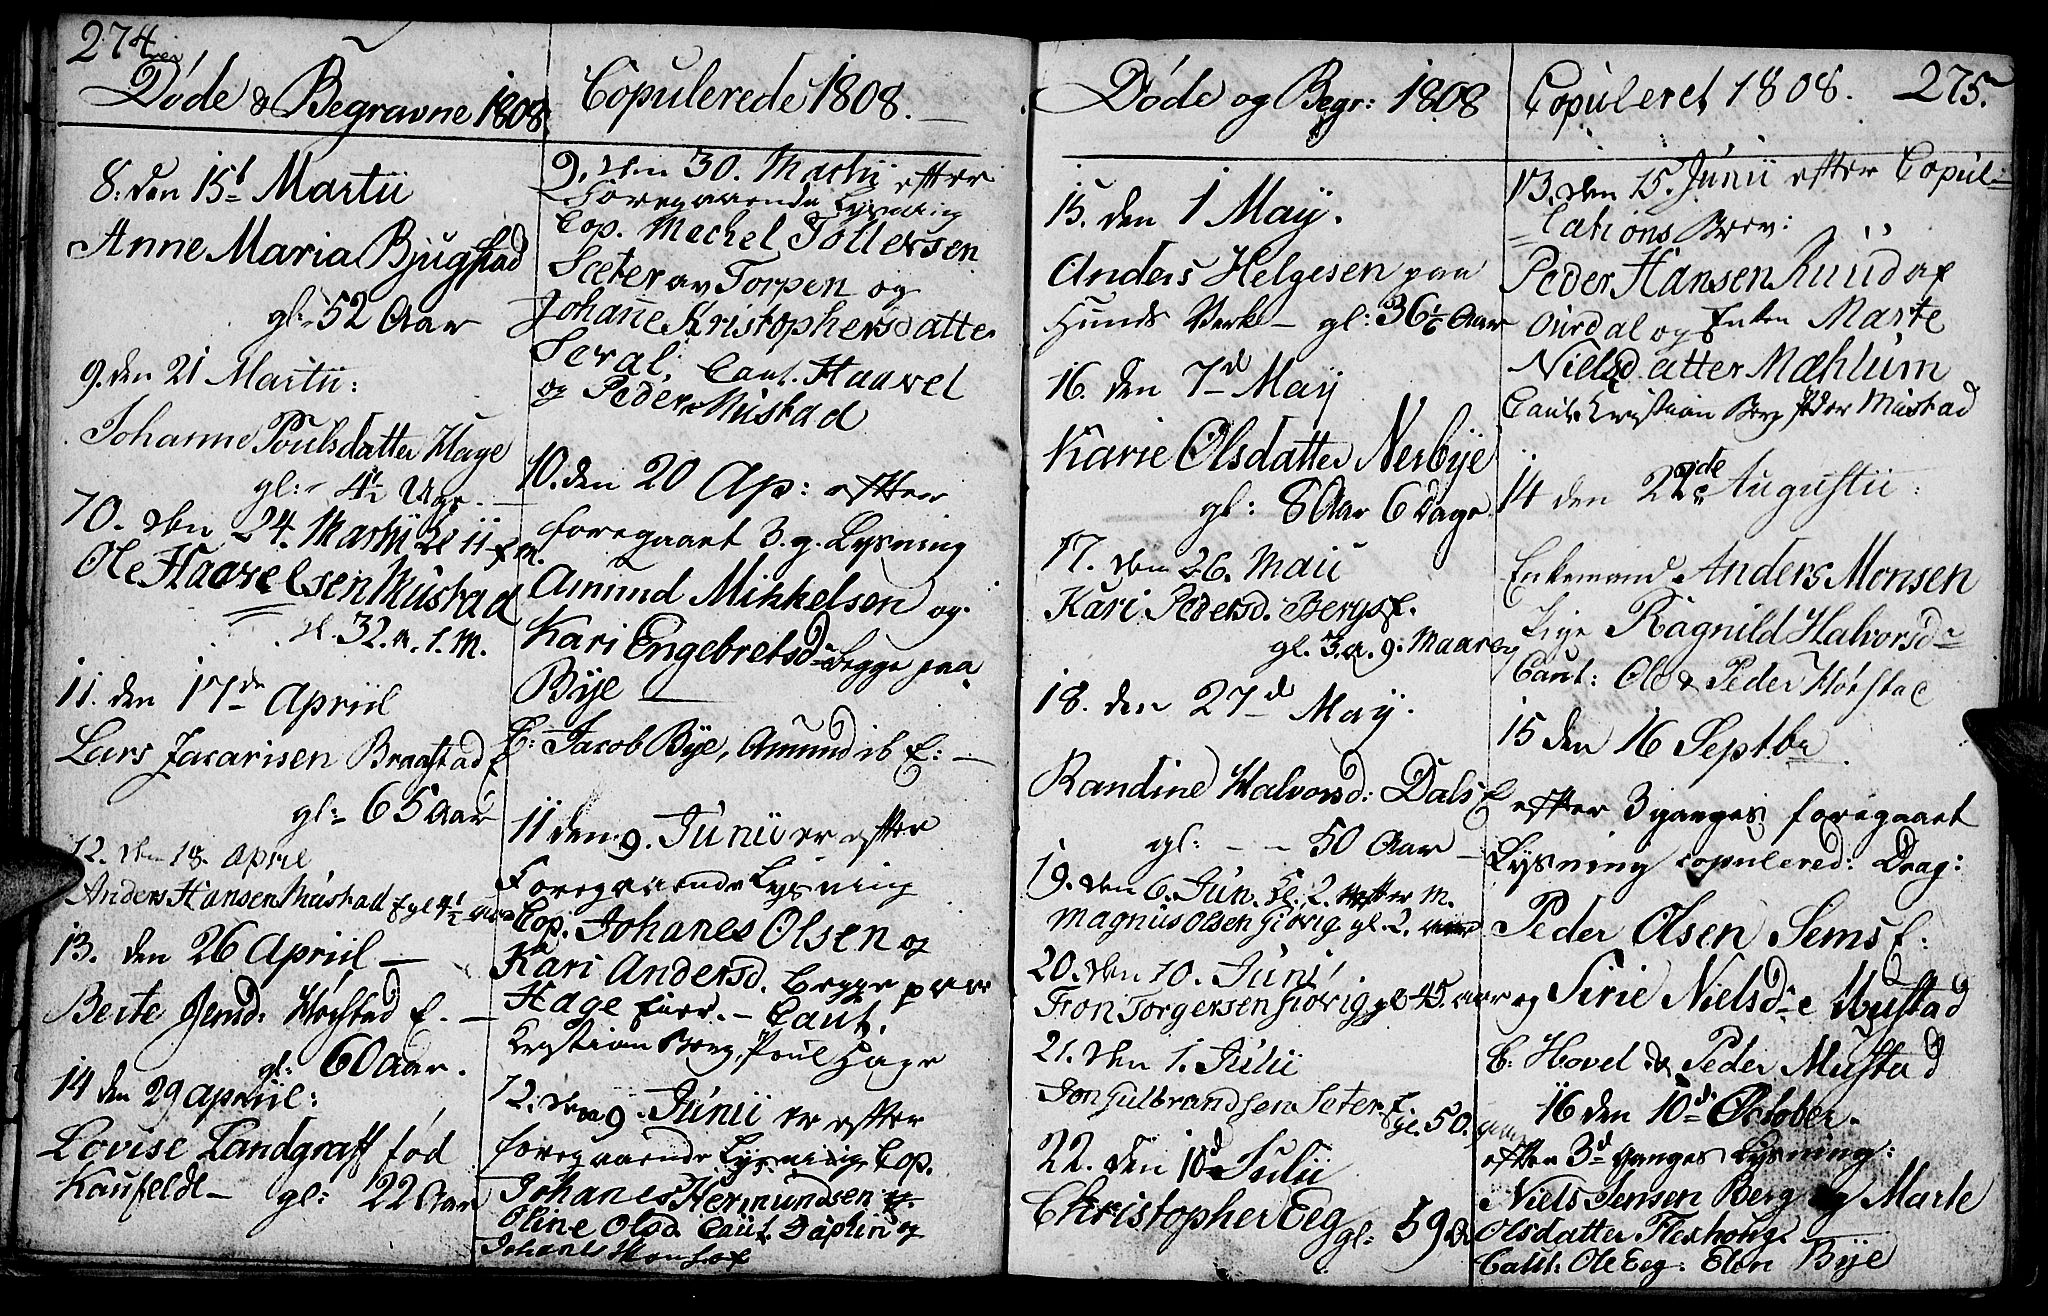 274
Døde & Begravne 1808
8. den 15t Martii
Anne Maria Bjugstad
gl: 52 Aar
9. den 21 Martii:
Johanne Poulsdatter Hage
gl: 4½ Uge
10. den 24. Martii
Ole Haavelsen Mustad
32. a. 1. M.
11. den 17de Apriil
Lars Jacarisen Braastad E
gl: 65 Aar
12. den 18. April
Anders Hansen Mustad E gl 4½ aar
13. den 26 Apriil
Berte Jensd: Høstad E.
gl: 60 aar.
14 den 29 apriil:
Lovise Landgraff fød
Kaufeldt gl: 22 Aar
Copulerede 1808.
9. den 30. Martii efter
Foregaaende Lysning
Cop. Mechel Tollersen
Sæter av Torpen og
Johanne Kristophersdatter
Seval, Caut. Haavel
og Peder Mustad
10. den 20 Ap: efter
foregaaet 3. g. Lysning
Amund Mikkelsen og
Kari Engebretsd begge paa
Bye
C: Jacob Bye, Amund ib E:
11 den 9. Junii er efter
Foregaaende Lysning
Cop. Johanes Olsen og
Kari Andersd. begge paa
Hage Eier. Caut.
Kristian Berg, Poul Hage
12. den 9. Junii er efter
foregaaende Lysning Cop.
Johanes Hermundsen
Oline Olsd. Caut. Daphin og
Johanes
Døde og Begr: 1808
15. den 1 May.
Anders Helgesen paa
Hunds Verk gl: 36½ Aar
16. den 7d May
Karie Olsdatter Nerbye
gl: 8 Aar 6 Dage
17. den 26. Maii
Kari Pedersd. Bergs E.
gl. 3. a. 9. Maan
18. den 27d May.
Randine Halvorsd: Dals E
gl: 50 Aar
19. den 6. Jun. Kl. 2. efter M.
Magnus Olsen Giövig gl. 2. aar
20. den 10. Juni
Tron Torgersen Giövig gl 45 aar
21. den 1. Julii
Jon Gulbrandsen Seter E.
gl. 50. aar
22. den 10d Julii
Christopher Eeg gl: 59 a
Copuleret 1808. 275.
13. den 15. Junii efter Copul-
lations Brev:
Peder Hansen Ruud af
Ourdal og Enken Marte
Nielsdatter Mæhlum
Caut. Kristian Berg Peder Mustad
14 den 22de Augustii:
Enkemand Anders Monsen
Pige Ragnild Halvorsd
Caut: Ole & Peder Høistad
15 den 16 Septbr
efter 3 ganges foregaaet
Lysning copulered: Drag:
Peder Olsen Sems E:
og Sirie Nielsd Mustad
C: Hovel & Peder Mustad
16 den 10d October.
efter 3d ganges Lysning:
Niels Jensen Berg og Marte
Olsdatter
Caut: Ole Eeg: Bye